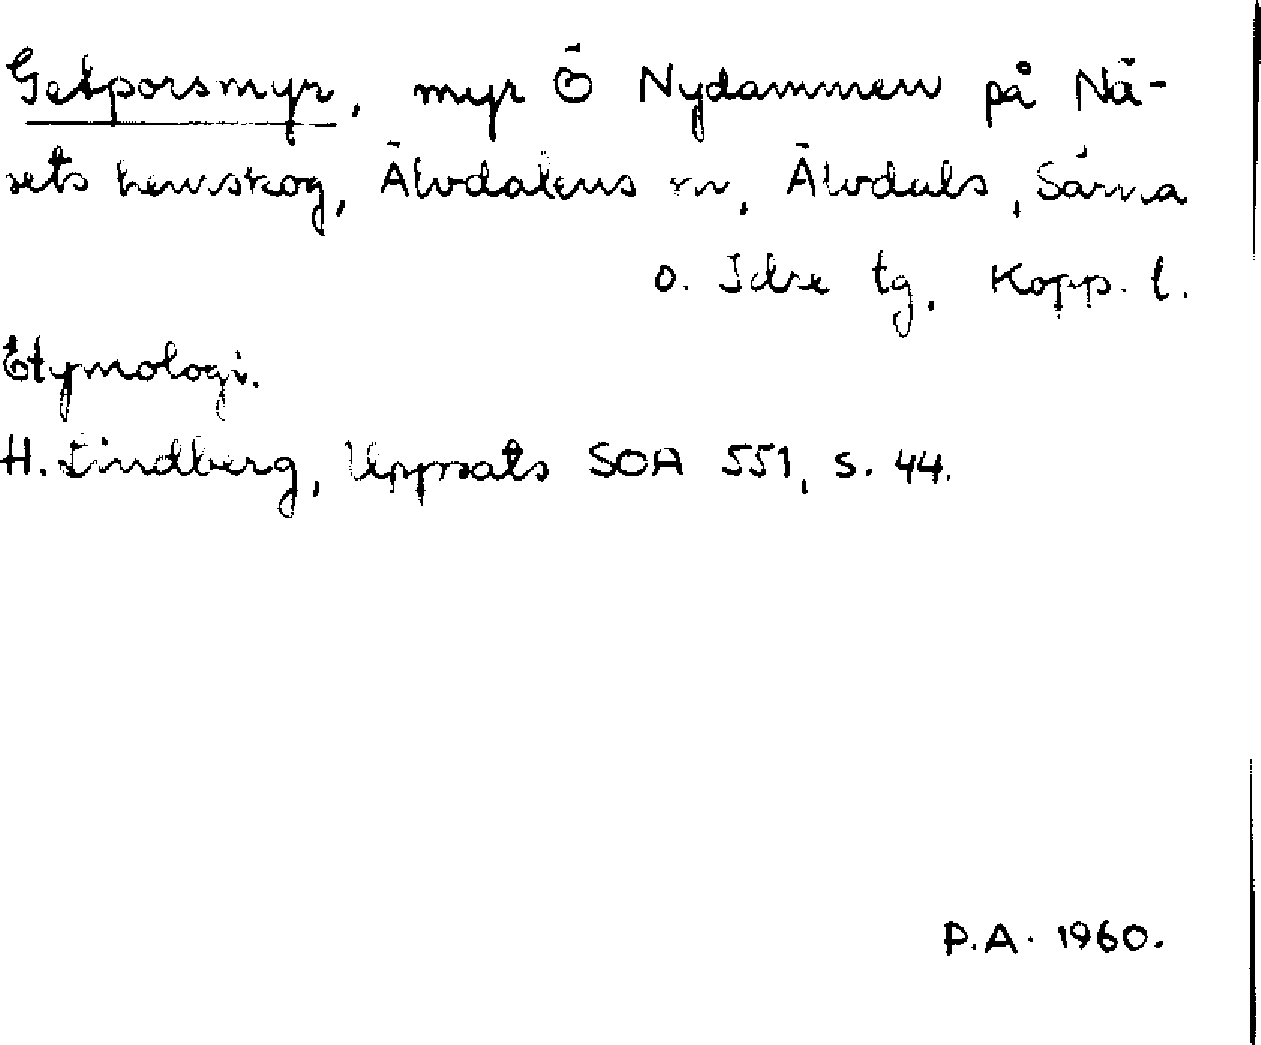 Getporsmyr, myr Ö Nydammen på Nä-
sets hemskog, Älvdalens sn, Älvdals, Särna
o. Idre tg, Kopp. l.
Etymologi.
H. Lindberg, Uppsats SOA 551, s. 44.
P.A. 1960.